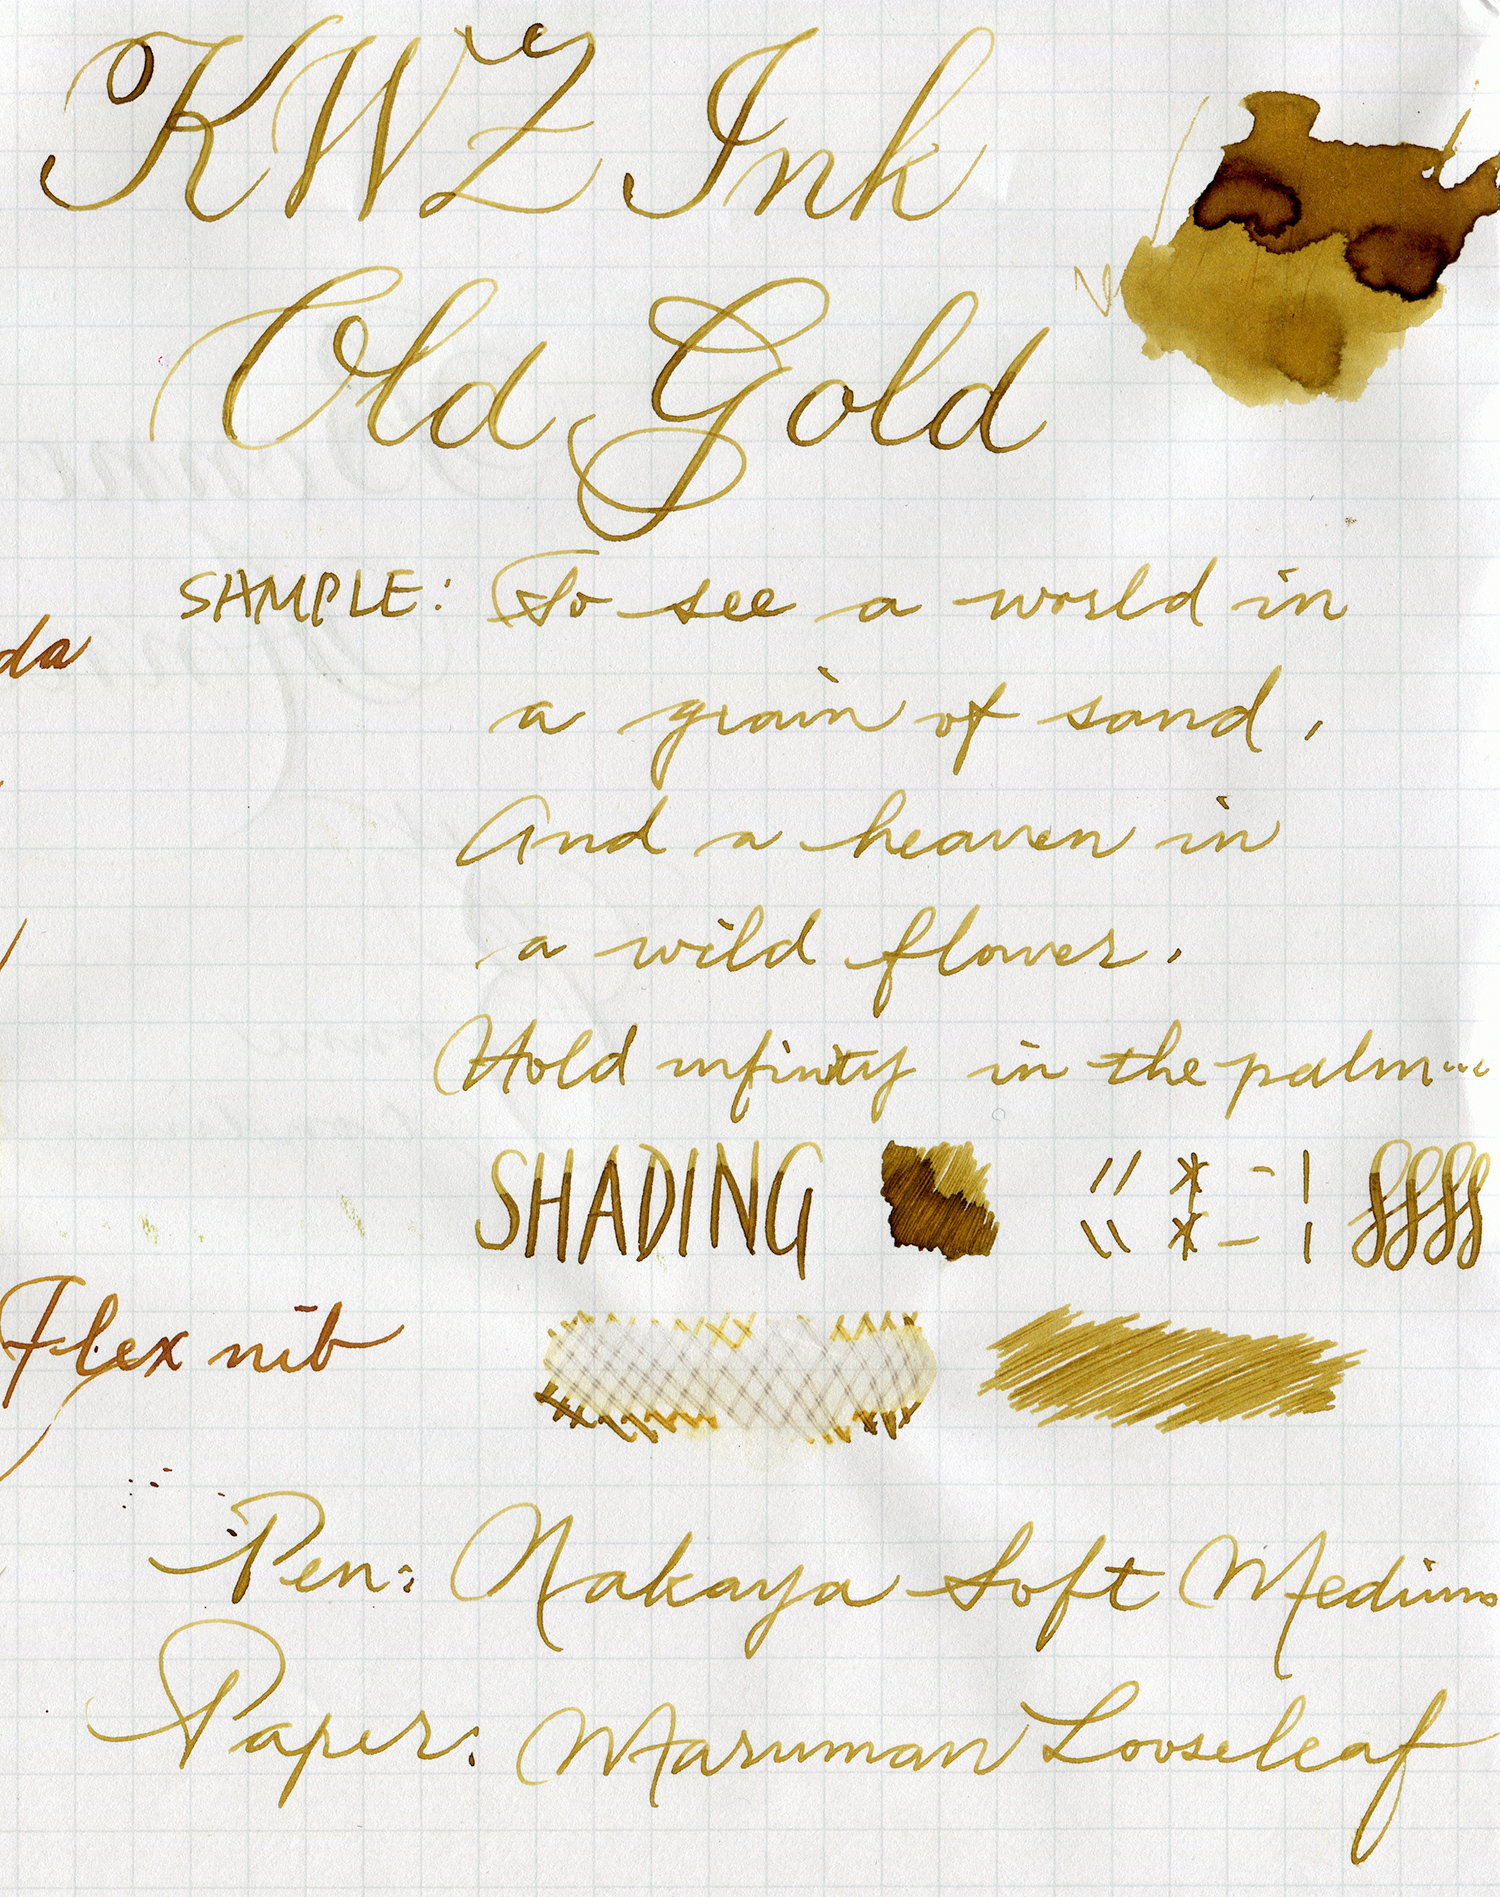 KWZ Ink
Old Gold
SAMPLE: To see a world in
da
a grain of sand,
And a heaven in
a wild flower.
Hold infinity in the palm...
SHADING
Flex nib
Pen: Nakaya Soft Medium
Paper: Maruman Looseleaf